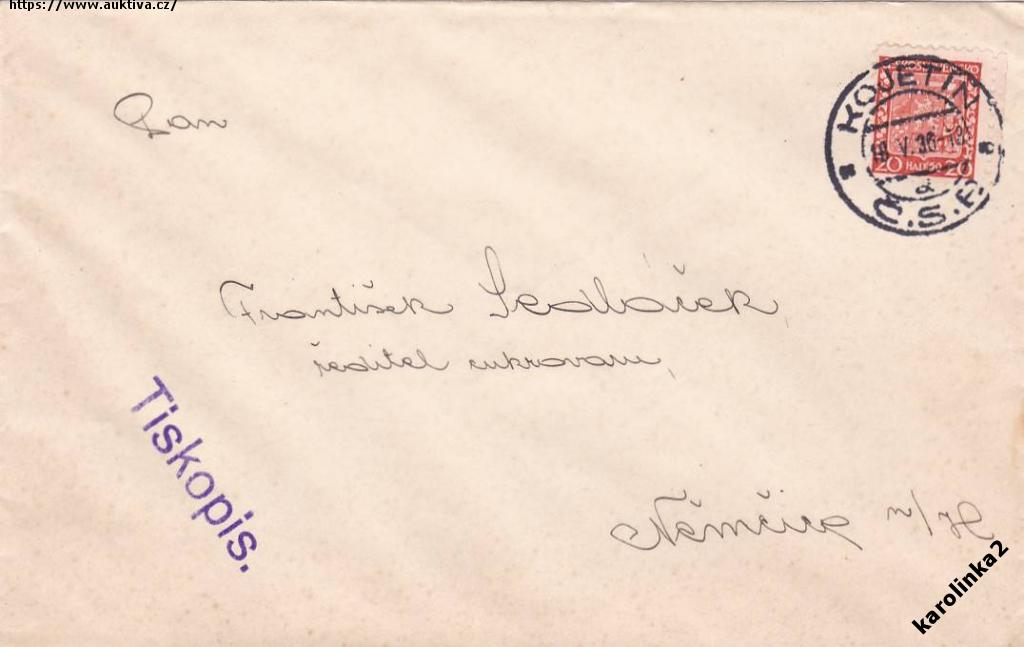 https://www.auktiva.cz/
Pan
KOJETÍN
18.V.36
a
Č.S.R.
20 HALÉŘŮ 20
František Sedláček,
ředitel cukrovaru,
Tiskopis.
Němčice n/H
karolinka2